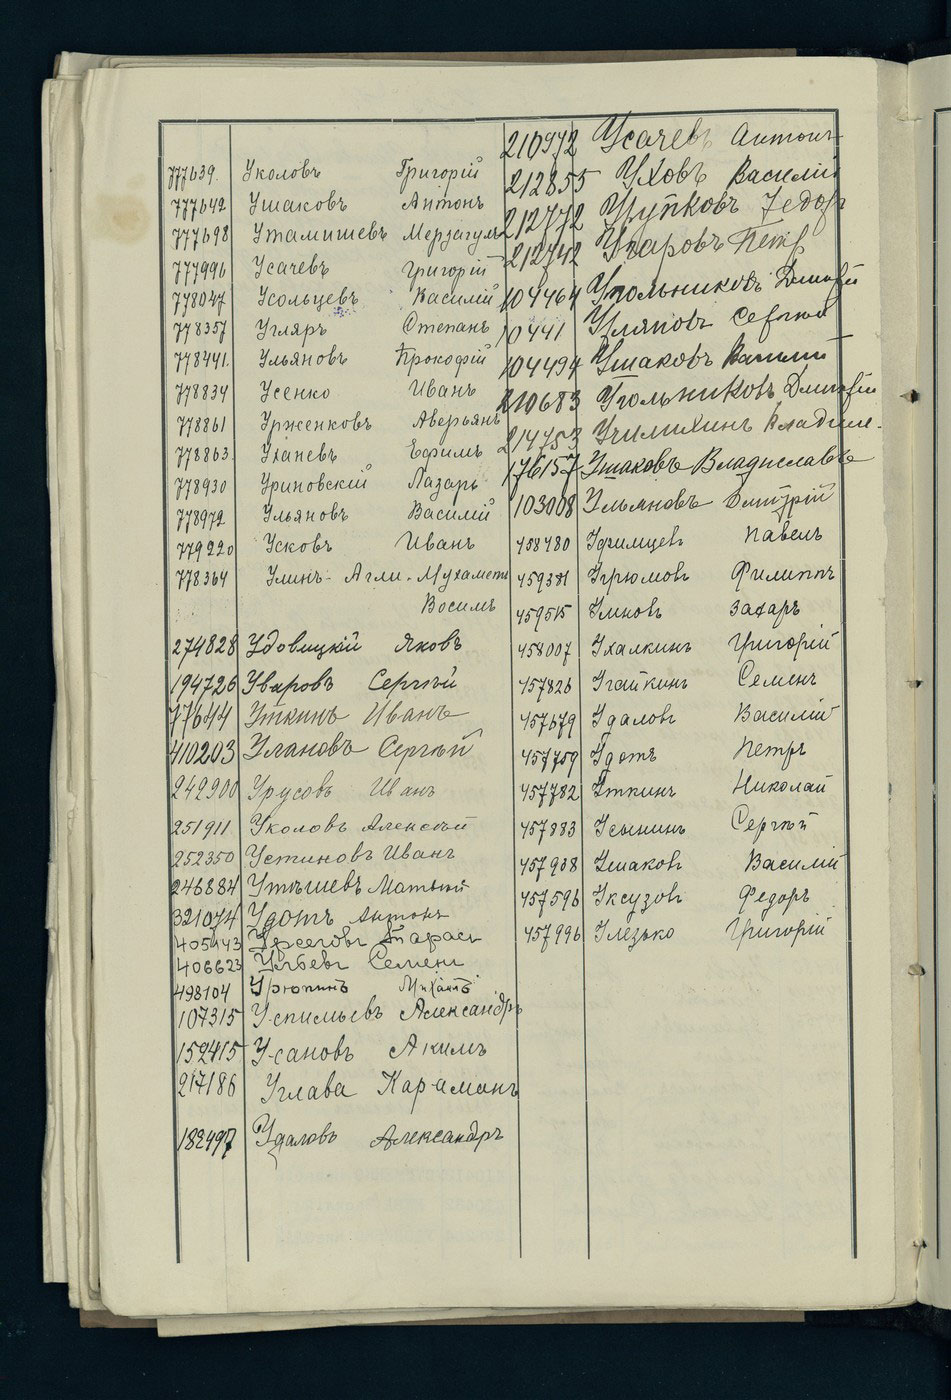 777639. Уколовъ Григорій
777642 Ушаковъ Антонъ
777698 Утамишевъ Мерзагулъ
777996 Усачевъ Григорій
778047 Усольцевъ Василій
778357 Угляръ Степанъ
778441. Ульяновъ Прокофій
778834 Усенко Иванъ
778861 Урженковъ Аверьянъ
778863. Уханевъ Ефимъ
778930 Уриновскій Лазарь
778972 Ульяновъ Василій
779220 Усковъ Иванъ
778364 Улинъ-Агли-Мухаметъ
Восимъ
274828 Удовицкій Яковъ
194726 Уваровъ Сергѣй
77644 Уткинъ Иванъ
410203 Улановъ Сергѣй
242900 Урусовъ Иванъ
251911 Уколовъ Алексѣй
252350 Устиновъ Иванъ
246884 Утышевъ Матвѣй
321074 Удотъ Антонъ
405143 Тарасъ
406623 Семенъ
498104 Урюпинъ Михаилъ
107315 Успильевъ Александръ
152415 Усановъ Акимъ
217186 Углава Караманъ
182497 Удаловъ Александръ
210972 Усачевъ Антонъ
212855 Уховъ Василій
212772 Урупковъ Федоръ
212742 Угаровъ Петр
104464 Угольниковъ Дмитрій
10441 Уляновъ Сергѣй
104494 Ушаковъ Василий
210683 Угольниковъ Дмитрій
214753 Училихинъ Владим.
176157 Ушаковъ Владиславъ
103008 Ульяновъ Дмитрій
458480 Уфимцевъ Павелъ
459381 Угрюмовъ Филиппъ
459515 Умновъ Захаръ
458007 Ухалкинъ Григорій
457826 Угайкинъ Семенъ
457679 Удаловъ Василій
457759 Удотъ Петръ
457782 Уткинъ Николай
457883 Усынинъ Сергѣй
457938 Ушаковъ Василій
457596 Уксузовъ Федоръ
457996 Улезько Григорій